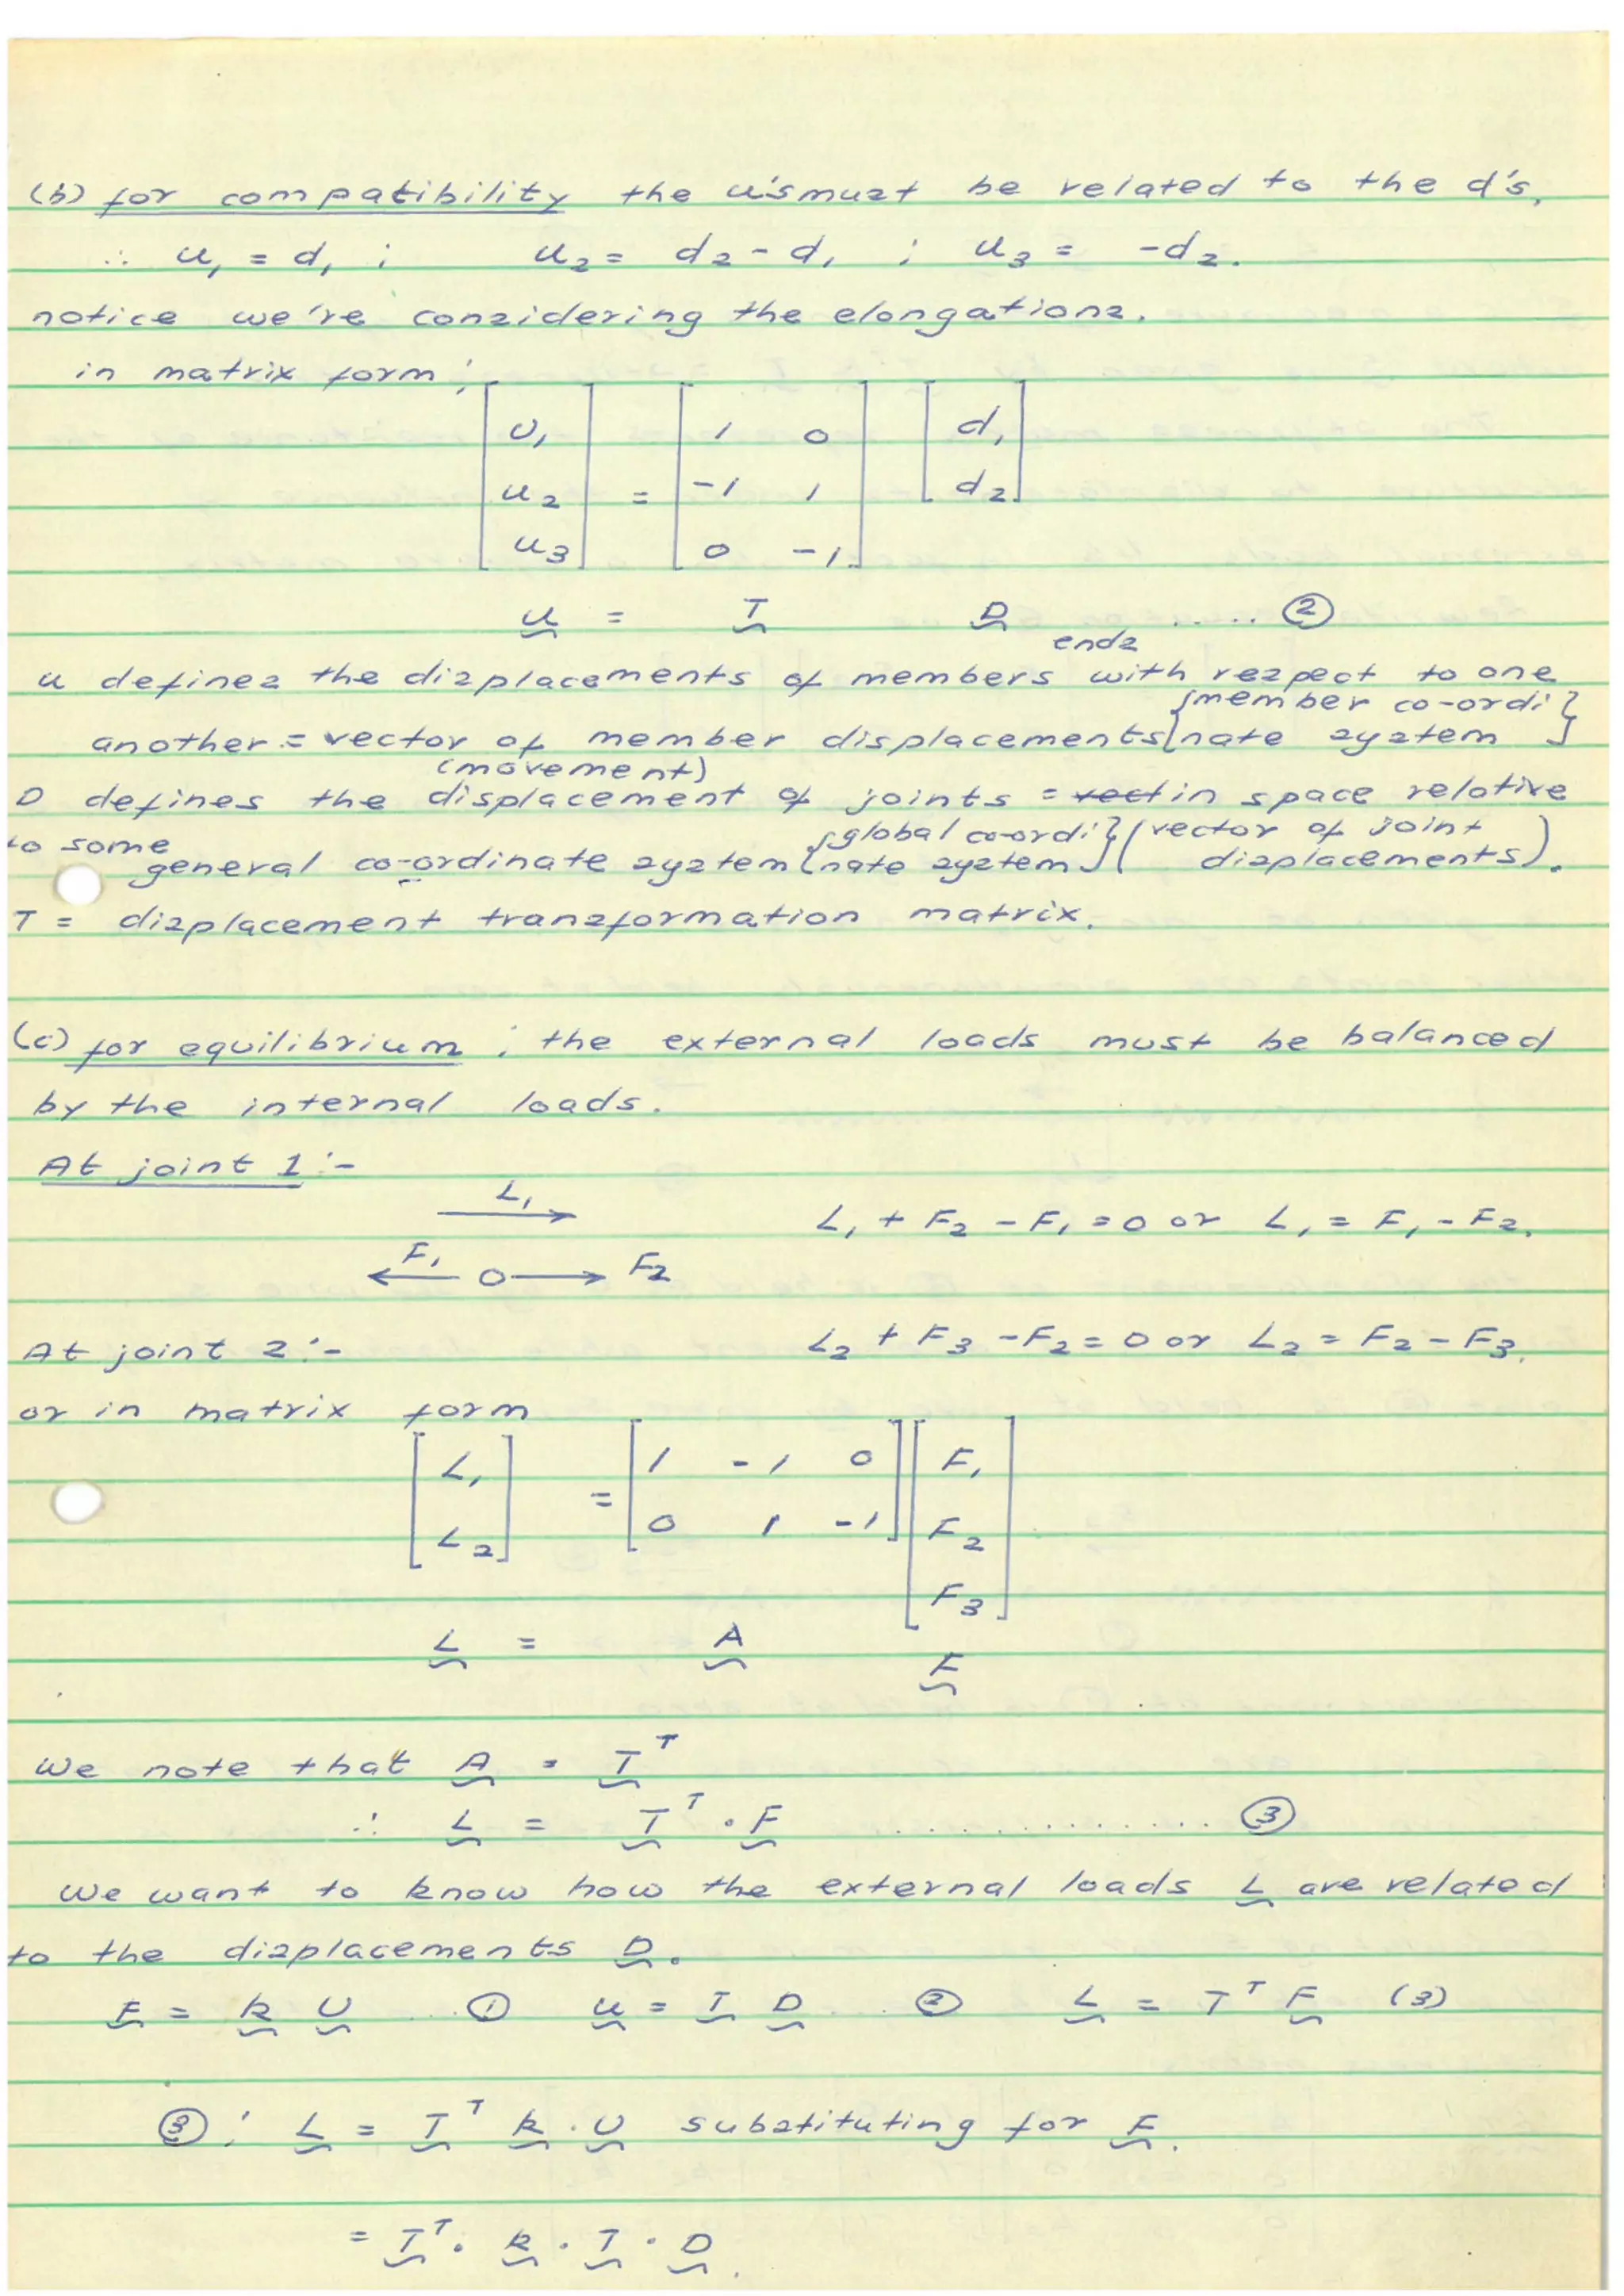 (b) for compatibility the u's must be related to the d's,
∴ u₁ = d₁ ; u₂ = d₂ - d₁ ; u₃ = -d₂.
notice we're considering the elongations.
in matrix form ;
[u₁ u₂ u₃] = [1 0 ; -1 1 ; 0 -1] [d₁ d₂]
u = T D ..... ②
ends
u defines the displacements of members with respect to one
another = vector of member displacements {member co-ordinate system}
(movement)
D defines the displacement of joints = in space relative
to some general co-ordinate system {global co-ordinate system} (vector of joint displacements).
T = displacement transformation matrix.
(c) for equilibrium ; the external loads must be balanced
by the internal loads.
At joint 1 :-
L₁
L₁ + F₂ - F₁ = 0 or L₁ = F₁ - F₂.
F₁ ← O → F₂
At joint 2 :- L₂ + F₃ - F₂ = 0 or L₂ = F₂ - F₃.
or in matrix form
[L₁ L₂] = [1 -1 0 ; 0 1 -1] [F₁ F₂ F₃]
L = A F
We note that A = Tᵀ
∴ L = Tᵀ . F .............. ③
We want to know how the external loads L are related
to the displacements D.
F = k U .. ① u = T D .. ② L = Tᵀ F (3)
③ : L = Tᵀ k . U substituting for F.
= Tᵀ . k . T . D.